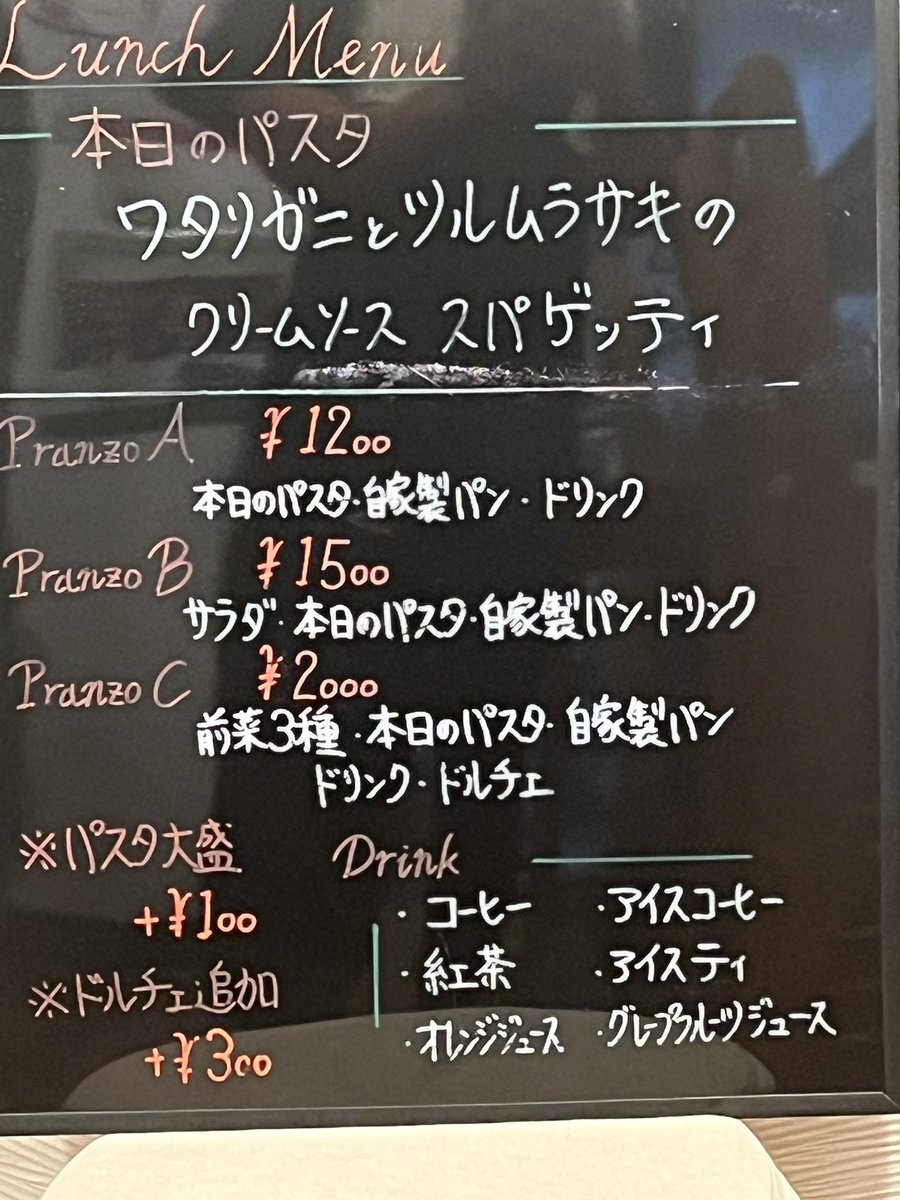 Lunch Menu
本日のパスタ
ワタリガニとツルムラサキの
クリームソース スパゲッティ
Pranzo A ¥1200
本日のパスタ・自家製パン・ドリンク
Pranzo B ¥1500
サラダ・本日のパスタ・自家製パン・ドリンク
Pranzo C ¥2000
前菜3種・本日のパスタ・自家製パン
ドリンク・ドルチェ
※パスタ大盛
+¥100
※ドルチェ追加
+¥300
Drink
・コーヒー ・アイスコーヒー
・紅茶 ・アイスティ
・オレンジジュース ・グレープフルーツジュース